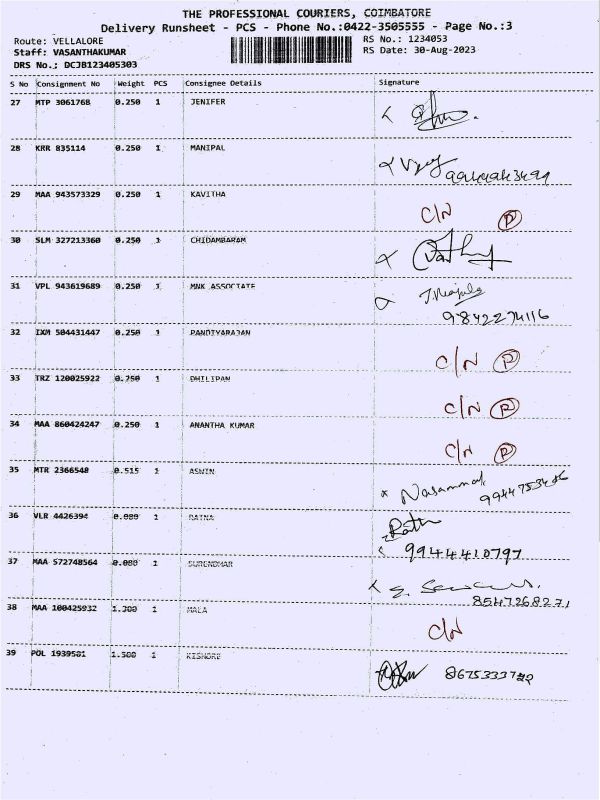 THE PROFESSIONAL COURIERS, COIMBATORE
Delivery Runsheet - PCS - Phone No.:0422-3505555 - Page No.:3
Route: VELLALORE RS No.: 1234053
Staff: VASANTHAKUMAR RS Date: 30-Aug-2023
DRS No.; DCJB123405303
S No Consignment No Weight PCS Consignee Details Signature
27 MTP 3061768 0.250 1 JENIFER
28 KRR 835114 0.250 1 MANIPAL
29 MAA 943573329 0.250 1 KAVITHA
C/N P
30 SLM 327213360 0.250 1 CHIDAMBARAM
31 VPL 943619689 0.250 1 MNK ASSOCIATE
9842274116
32 IXM 504431447 0.250 1 PANDIYARAJAN
C/N P
33 TRZ 120025922 0.250 1 DHILIPAN
C/N P
34 MAA 860424247 0.250 1 ANANTHA KUMAR
C/N P
35 MTR 2366548 0.515 1 ASWIN
36 VLR 4426394 0.080 1 RATNA
9944410797
37 MAA 572748564 0.080 1 SURENDHAR
8547268271
38 MAA 100425932 1.300 1 MALA
C/N
39 POL 1939501 1.500 1 KISHORE